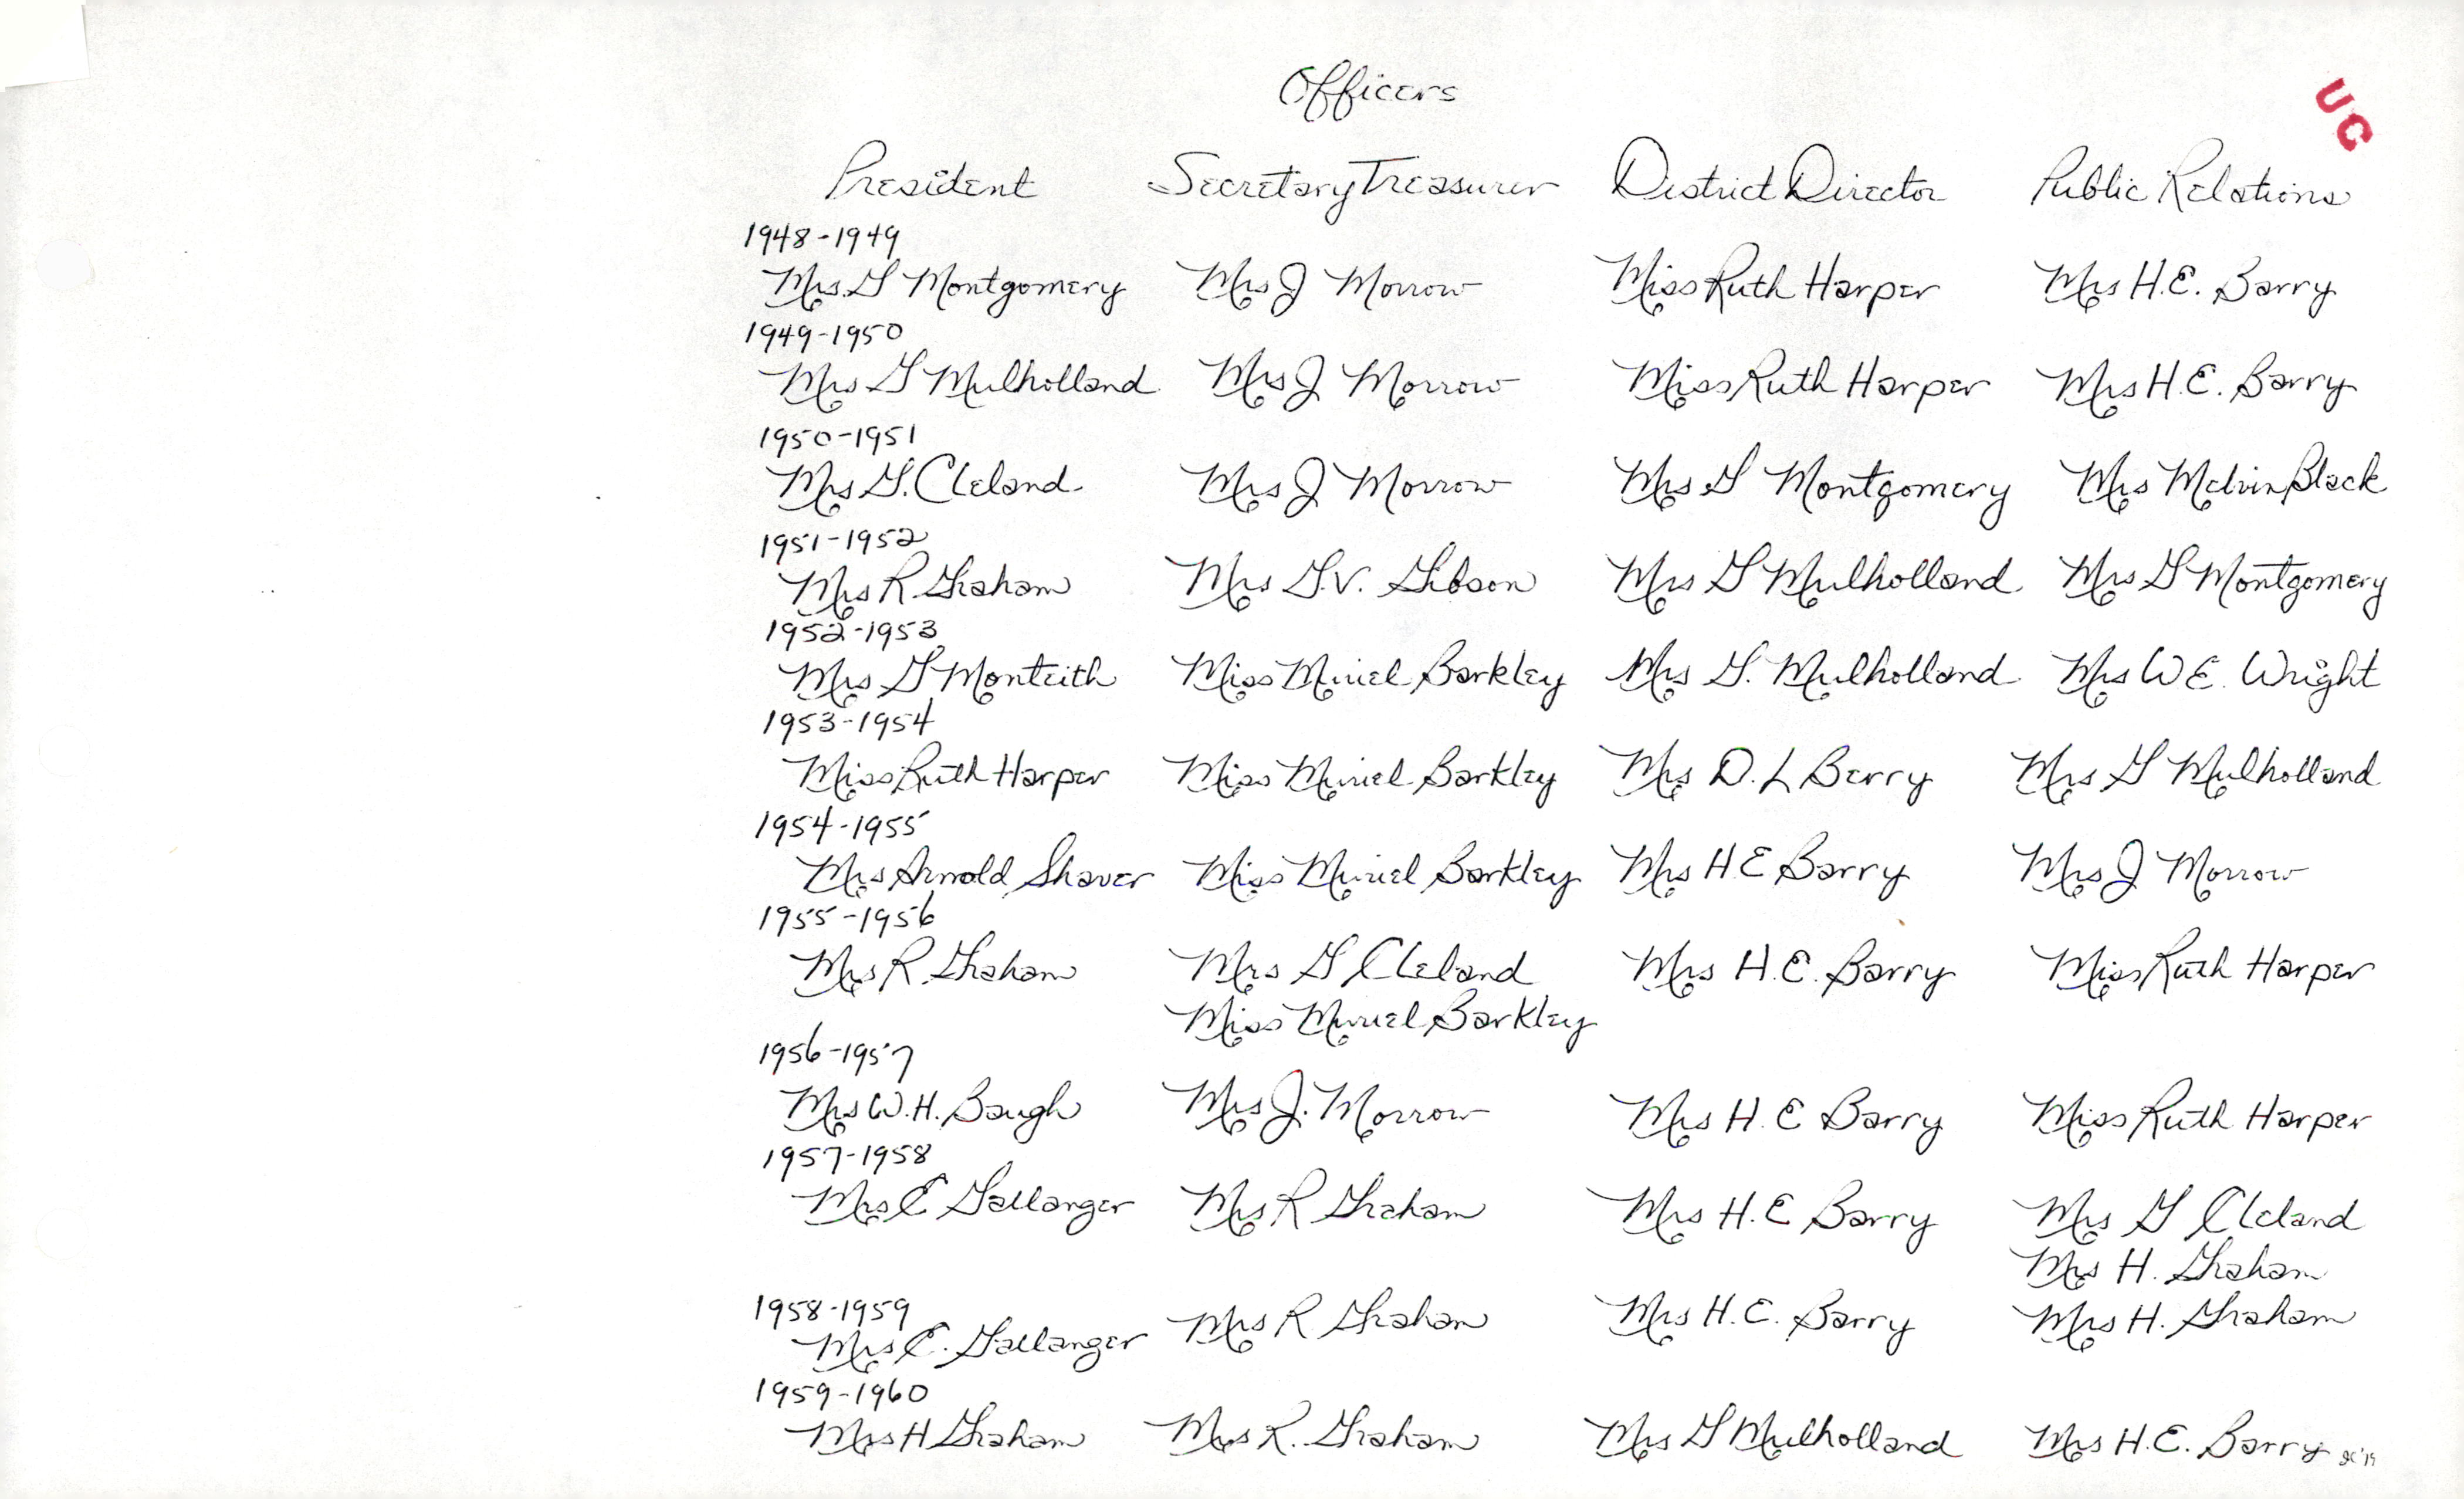 Officers
UC
President Secretary Treasurer District Director Public Relations
1948-1949
Mrs. G Montgomery Mrs J Morrow Miss Ruth Harper Mrs H.E. Barry
1949-1950
Mrs G Mulholland Mrs J Morrow Miss Ruth Harper Mrs H.E. Barry
1950-1951
Mrs G. Cleland Mrs J Morrow Mrs G Montgomery Mrs Melvin Black
1951-1952
Mrs R. Graham Mrs G.V. Gibson Mrs G Mulholland Mrs G Montgomery
1952-1953
Mrs G Monteith Miss Muriel Barkley Mrs G. Mulholland Mrs W E. Wright
1953-1954
Miss Ruth Harper Miss Muriel Barkley Mrs D. L Berry Mrs G Mulholland
1954-1955
Mrs Arnold Shaver Miss Muriel Barkley Mrs H E Barry Mrs J Morrow
1955-1956
Mrs R. Graham Mrs G Cleland Mrs H.E. Barry Miss Ruth Harper
Miss Muriel Barkley
1956-1957
Mrs W.H. Baugh Mrs J. Morrow Mrs H.E Barry Miss Ruth Harper
1957-1958
Mrs C Gallanger Mrs R Graham Mrs H.E Barry Mrs G Cleland
Mrs H. Graham
1958-1959
Mrs C. Gallanger Mrs R Graham Mrs H.E. Barry Mrs H. Graham
1959-1960
Mrs H Graham Mrs R. Graham Mrs G Mulholland Mrs H.E. Barry